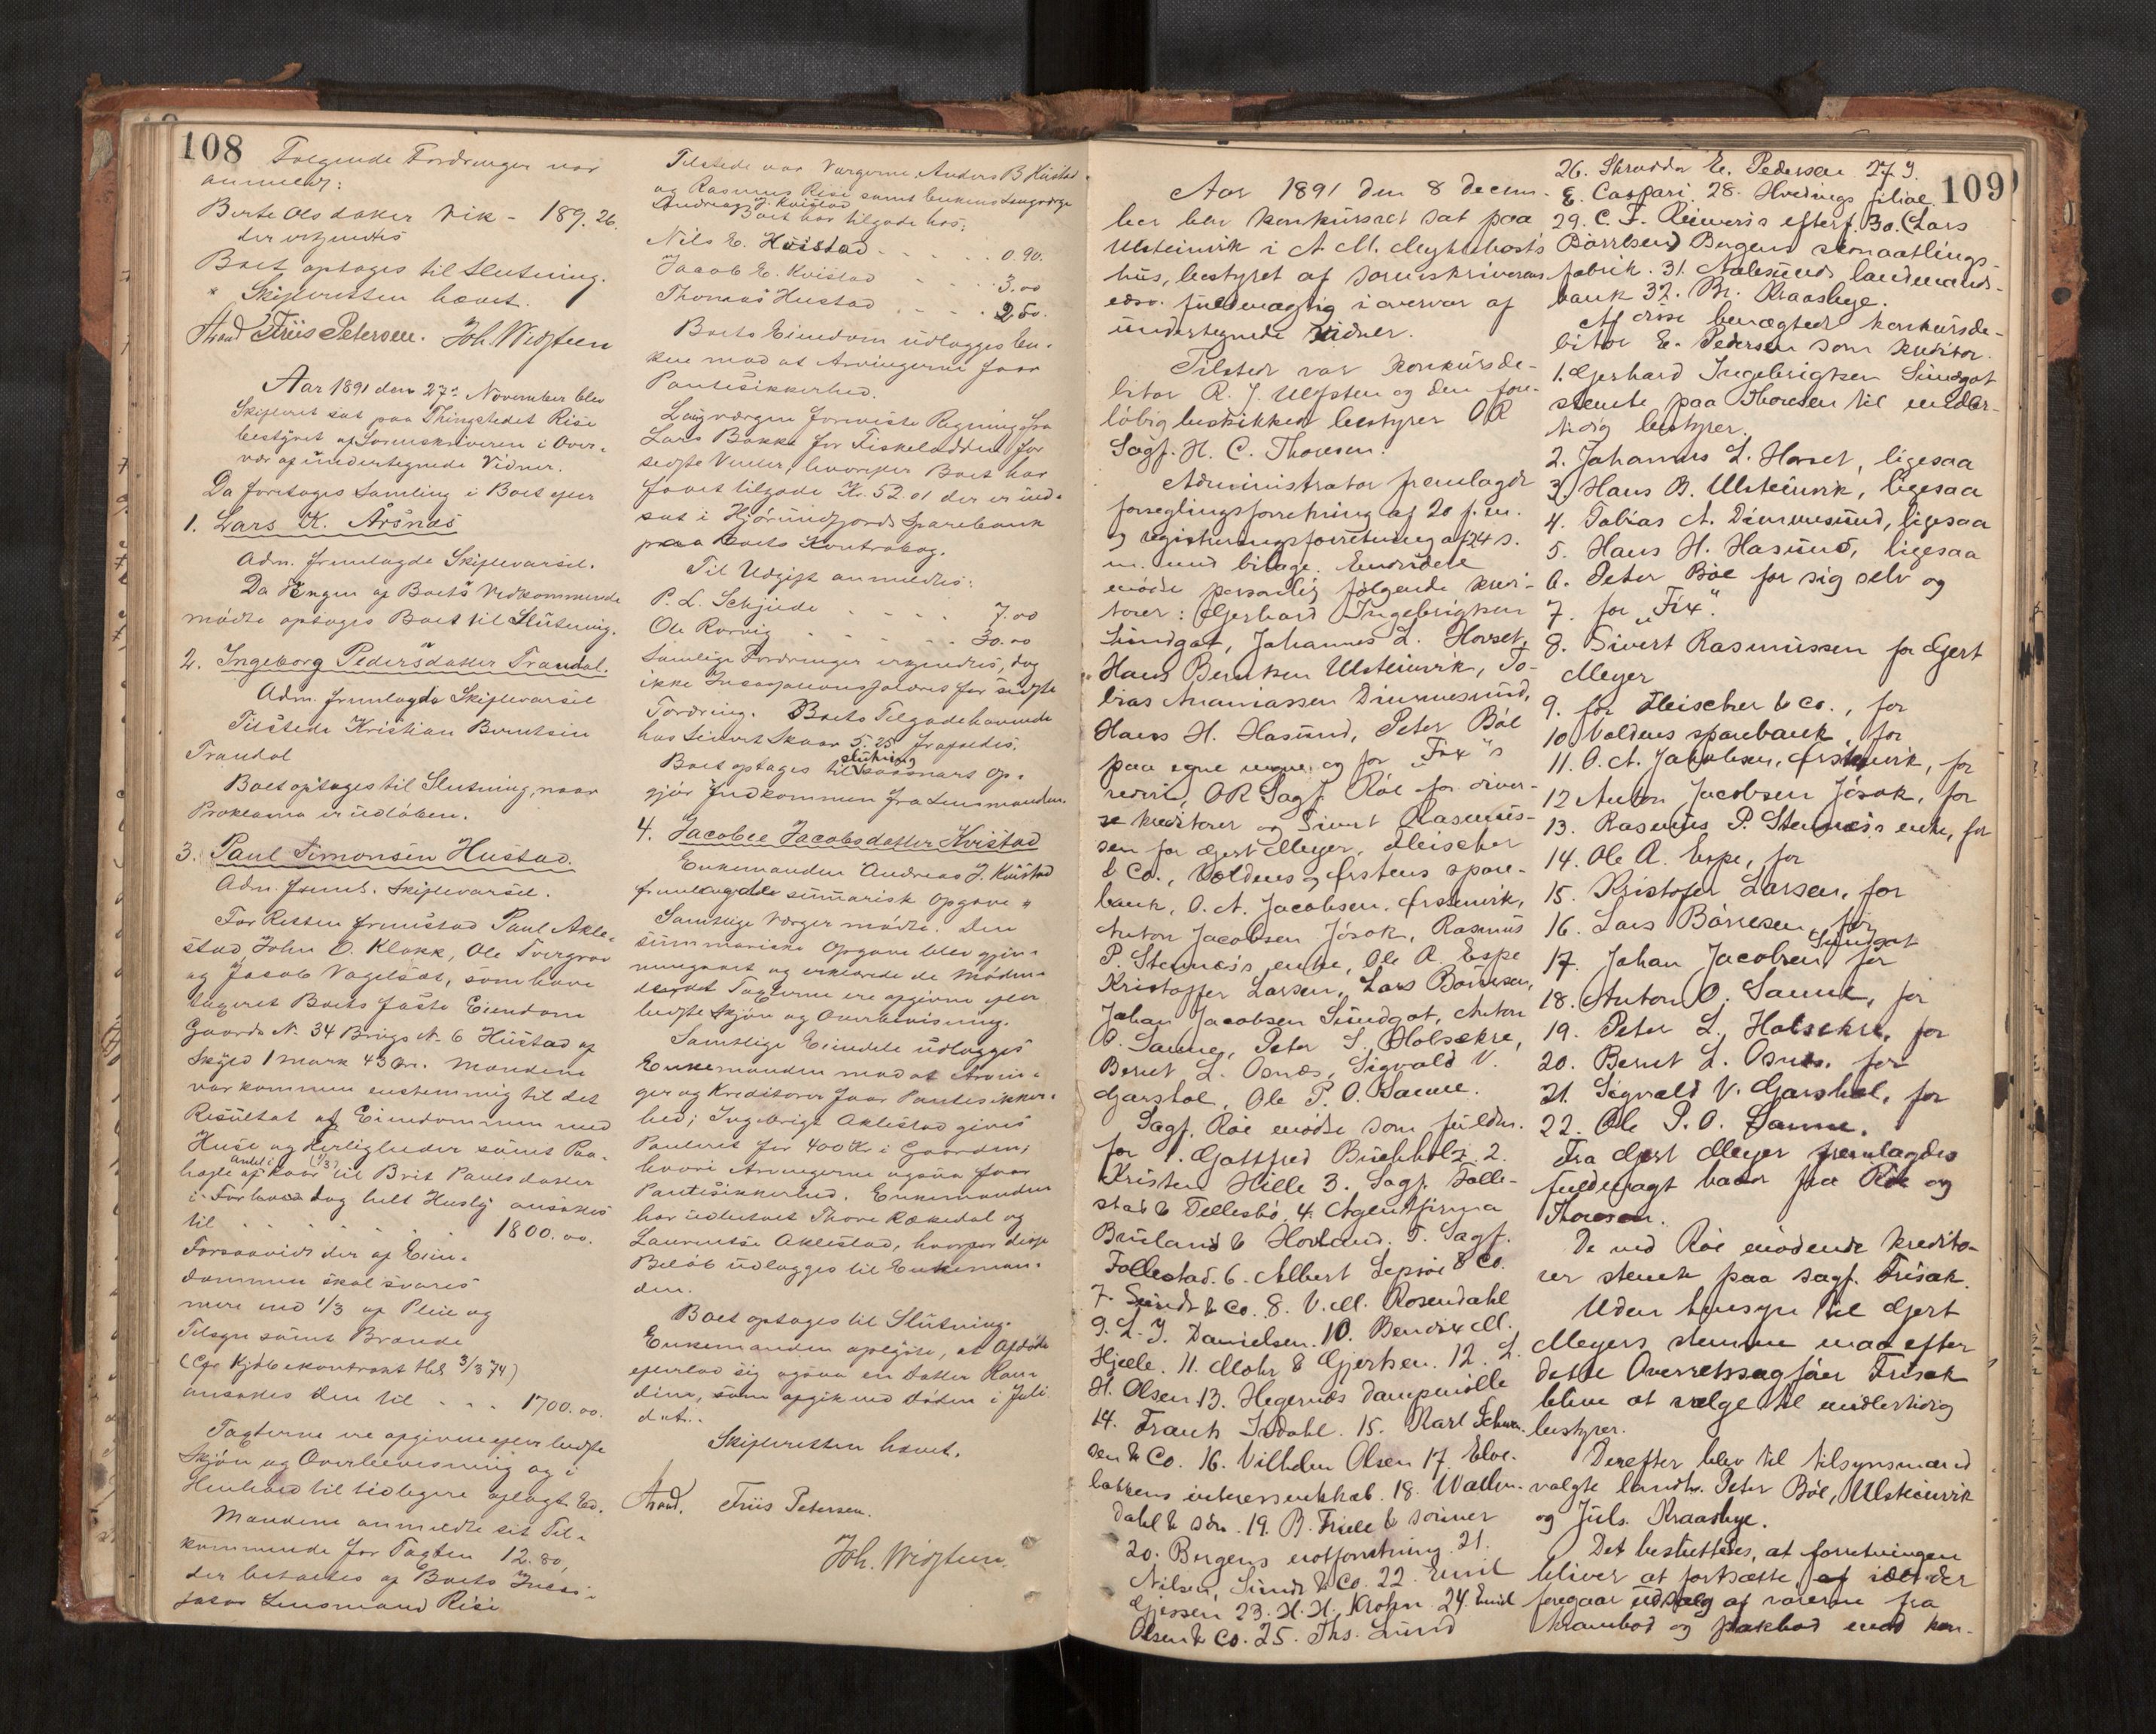 108
Følgende Fordringer var
anmeldt:
Berte Olsdatter Vik - 189.26.
der erkjendtes
Boet optages til Slutning.
Skifteretten hævet.
Friis Petersen. Joh. Wiggteen
Aar 1891 den 27de November blev
Skifteret sat paa Thingstedet Rise
bestyret af Sorenskriveren i Over-
vær af undertegnede Vidner.
Da foretoges Samling i Boet efter
1. Lars K. Årsnæs
Adm. fremlagde Skiftevarsel.
Da Ingen af Boets Vedkommende
mødte optages Boet til Slutning.
2. Ingeborg Pedersdatter Trandal.
Adm. fremlagde Skiftevarsel
Tilstede Kristian Berntsen
Trandal
Boet optages til Slutning, naar
Proklama er udløben.
3. Paul Simonsen Hustad.
Adm. freml. Skiftevarsel.
For Retten fremstod Paul Akle-
stad, John O. Klokk, Ole Tvergrov
og Jacob Vagelsæt, som have
taxeret Boets faste Eiendom
Gaards No. 34 Brugs No. 6 Hustad af
Skyld 1 Mark 43 Øre. Mændene
var kommen enstemmig til det
Resultat at Eiendommen med
Huse og Herligheder samt Paa-
hefte af Kaar til Brit Paulsdatter
Andel i (1/3)
i Forhold dog helt Husly ansættes
til . . . . . . 1800.00.
Forsaavidt der af Eien-
dommen skal svares
mere end 1/3 af Pleie og
Tilsyn samt Brænde
(Cfr Kjøbekontrakt thl. 3/3 74)
ansættes den til . . . 1700.00.
Taxterne ere afgivne efter bedste
Skjøn og Overbevisning og i
Henhold til tidligere aflagt Ed.
Mændene anmeldte sit Til-
kommende for Taxten 12.80,
der betaltes af Boets Incas-
sator Lensmand Rise
Tilstede var Vergerne Anders B Hustad
og Rasmus Rise samt Enkens Laugverge
Andreas J. Kvistad
Boet har tilgode hos:
Nils E. Hustad - - - - - - 0.90.
Jacob E. Kvistad - - - - 3.00
Thomas Hustad . . . . 2.50.
Boets Eiendom udlægges En-
ken mod at Arvingerne faar
Pantesikkerhed.
Laugvergen foreviste Regning fra
Lars Bakke for Fiskelodden for
sidste Vinter, hvorefter Boet har
faaet tilgode Kr. 52.01 der er ind-
sat i Hjørundfjords Sparebank
paa Boets Kontrabog.
Til Udgift anmeldtes:
P. L. Schjelde - - - - 7.00
Ole Rørvig - - - - - - 30.00
Samtlige Fordringer erkjendtes, dog
ikke Incassationssalæret for sidste
Fordring. Boets Tilgodehavende
hos Sivert Skaar 5.25 frafaldtes.
Boet optages til Slutning saasnart Op-
gjør indkommen fra Lensmanden.
4. Jacobee Jacobsdatter Kvistad
Enkemanden Andreas J. Kvistad
fremlagde summarisk Opgave
Samtlige Verger mødte. Den
summariske Opgave blev gjen-
nemgaaet og erklærede de Møden-
de at Taxterne ere afgivne efter
bedste Skjøn og Overbevisning.
Samtlige Eiendele udlægges
Enkemanden mod at Arvin-
ger og Kreditorer faar Pantesikker-
hed; Ingebrigt Aklestad gives
Panteret for 400 Kr i Gaarden,
hvori Arvingerne ogsaa faar
Pantesikkerhed. Enkemanden
har udbetalt Thore Rækedal og
Laurentse Aklestad, hvorfor disse
Beløb udlægges til Enkeman-
den.
Boet optages til Slutning.
Enkemanden oplyste, at Afdøde
efterlod sig ogsaa en Datter Ran-
dine, som afgik ved Døden i Juli
d. A..
Skifteretten hævet.
Friis Petersen.
Joh. Wiggteen.
109
Aar 1891 den 8 decem-
ber blev konkursret sat paa
Ulsteinvik i A. M. Myklebosts
hus, bestyret af sorenskriverens
edsv. fuldmægtig i overvær af
undertegnede vidner.
Tilstede var konkursde-
bitor R. J. Ulfsten og den fore-
løbig beskikkede bestyrer OR
Sagf. H. C. Thoresen.
Administrator fremlagde
forseglingsforretning af 20 f. m.
og registreringsforretning af 24 s.
m. med bilage. Endvidere
mødte personlig følgende kredi-
torer: Gjerhard Ingebrigtsen
Sundgot, Johannes L. Hovset,
Hans Berntsen Ulsteinvik, To-
bias Ananiassen Dimmesund,
Hans H. Hasund, Peter Bøe
paa egne vegne og for „Fix"s
rederi, OR Sagf. Røe for diver-
se kreditorer og Sivert Rasmus-
sen for Gjert Meyer, Fleischer
& Co., Voldens og Ørstens spare-
bank, O. A. Jacobsen, Ørstenvik,
Anton Jacobsen Jøsok, Rasmus
P. Stennæs's enke, Ole A. Espe
Kristoffer Larsen, Lars Børresen,
Johan Jacobsen Sundgot, Anton
O. Sanne, Peter L. Holsekre,
Bernt L. Osnes, Sigvald V.
Garshol, Ole P. O. Sanne.
Sagf. Røe mødte som fuldm.
for 1. Gottfred Buchholz. 2.
Kristen Hille 3. Sagf. Folle-
stad & Tellesbø, 4. Agentfirma
Bruland & Hovland. 5. Sagf.
Follestad. 6. Albert Lepsøe & Co.
7. Sundt & Co. 8. V. M. Rosendahl
9. L. J. Danielsen. 10. Bendix M.
Hjelle. 11. Mohr & Gjertsen. 12. L.
H. Olsen 13. Hegernæs dampmølle
14. Frantz Isdahl. 15. Karl Schwen-
sen & Co. 16. Vilhelm Olsen 17. Elve-
bakkens interessentskab. 18. Wallen-
dahl & søn. 19. B. Friele & sønner
20. Bergens notforretning. 21.
Nilsen, Sundt & Co. 22. Emil
Gjessen 23. H. H. Krohn 24. Emil
Olsen & Co. 25. Ths. Lund
26. Skrædder E. Pedersen 27 J.
E. Caspari. 28. Hvedings filial
29. C. F. Reimers's efterf. 30. (Lars
Børresen) Bergens skomagtlings-
fabrik. 31. Aalesunds landmands-
bank 32. Br. Kraasbye.
Af disse benægtede konkursde-
bitor E. Pedersen som kreditor.
1. Gjerhard Ingebrigtsen Sundgot
stemte paa Thoresen til midler-
tidig bestyrer.
2. Johannes L. Hovset, ligesaa
3. Hans B. Ulsteinvik, ligesaa
4. Tobias A. Dimmesund, ligesaa
5. Hans H. Hasund, ligesaa
6. Peter Bøe for sig selv og
7. for „Fix".
8. Sivert Rasmussen for Gjert
Meyer
9. for Fleischer & Co., for
10. Voldens sparebank, for
11. O. A. Jacobsen, Ørstenvik, for
12 Anton Jacobsen Jøsok, for
13. Rasmus P. Stennæs's enke, for
14. Ole A. Espe, for
15. Kristofer Larsen, for
16. Lars Børresen, for
17. Johan Jacobsen Sundgot, for
18. Anton O. Sanne, for
19. Peter L. Holsekre, for
20. Bernt L. Osnes, for
21. Sigvald V. Garshol, for
22. Ole P. O. Sanne.
Fra Gjert Meyer fremlagdes
fuldmagt baade fra Røe og
Thoresen.
De ved Røe mødende kredito-
rer stemte paa sagf. Frisak.
Uden hensyn til Gjert
Meyers stemme maa efter
dette Overretssagfører Frisak
blive at vælge til midlertidig
bestyrer.
Derefter blev til tilsynsmænd
valgte landh. Peter Bøe, Ulsteinvik
og Juls. Kraasbye.
Det besluttedes, at forretningen
bliver at fortsætte, idet der
foregaar udsalg af varerne fra
krambod og pakbod mod kon-